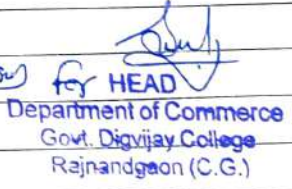 for HEAD
Department of Commerce
Govt. Digvijay College
Rajnandgaon (C.G.)